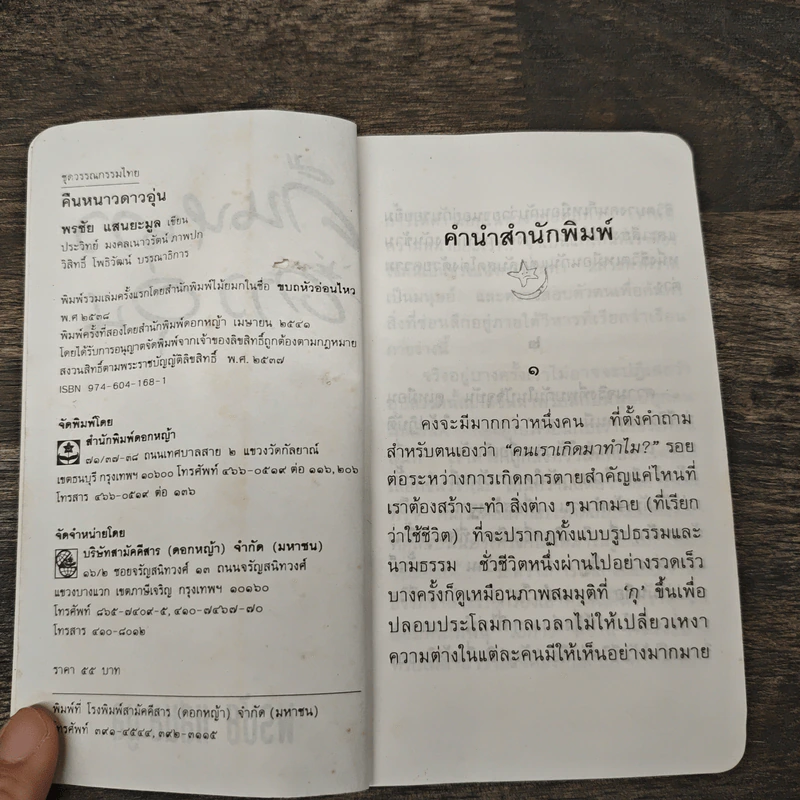 ชุดวรรณกรรมไทย
คืนหนาวดาวอุ่น
พรชัย แสนยะมูล เขียน
ประวิทย์ มงคลเนาวรัตน์ ภาพปก
วิสิทธิ์ โพธิวัฒน์ บรรณาธิการ
พิมพ์รวมเล่มครั้งแรกโดยสำนักพิมพ์ไม้ยมกในชื่อ ขบถหัวอ่อนไหว
พ.ศ ๒๕๓๘
พิมพ์ครั้งที่สองโดยสำนักพิมพ์ดอกหญ้า เมษายน ๒๕๔๑
โดยได้รับการอนุญาตจัดพิมพ์จากเจ้าของลิขสิทธิ์ถูกต้องตามกฎหมาย
สงวนสิทธิ์ตามพระราชบัญญัติลิขสิทธิ์ พ.ศ. ๒๕๓๗
ISBN 974-604-168-1
จัดพิมพ์โดย
สำนักพิมพ์ดอกหญ้า
๗๑/๓๗-๓๘ ถนนเทศบาลสาย ๒ แขวงวัดกัลยาณ์
เขตธนบุรี กรุงเทพฯ ๑๐๖๐๐ โทรศัพท์ ๔๖๖-๐๕๑๙ ต่อ ๑๑๖,๒๐๖
โทรสาร ๔๖๖-๐๕๑๙ ต่อ ๑๓๖
จัดจำหน่ายโดย
บริษัทสามัคคีสาร (ดอกหญ้า) จำกัด (มหาชน)
๑๖/๒ ซอยจรัญสนิทวงศ์ ๑๓ ถนนจรัญสนิทวงศ์
แขวงบางแวก เขตภาษีเจริญ กรุงเทพฯ ๑๐๑๖๐
โทรศัพท์ ๘๖๕-๗๔๐๙-๕, ๔๑๐-๗๔๖๗-๗๐
โทรสาร ๔๑๐-๘๐๑๒
ราคา ๕๕ บาท
พิมพ์ที่ โรงพิมพ์สามัคคีสาร (ดอกหญ้า) จำกัด (มหาชน)
โทรศัพท์ ๓๙๑-๔๕๔๔, ๓๙๒-๓๑๑๕
คำนำสำนักพิมพ์
๑
คงจะมีมากกว่าหนึ่งคน ที่ตั้งคำถาม
สำหรับตนเองว่า “คนเราเกิดมาทำไม?” รอย
ต่อระหว่างการเกิดการตายสำคัญแค่ไหนที่
เราต้องสร้าง—ทำ สิ่งต่าง ๆ มากมาย (ที่เรียก
ว่าใช้ชีวิต) ที่จะปรากฏทั้งแบบรูปธรรมและ
นามธรรม ชั่วชีวิตหนึ่งผ่านไปอย่างรวดเร็ว
บางครั้งก็ดูเหมือนภาพสมมุติที่ ‘กุ’ ขึ้นเพื่อ
ปลอบประโลมกาลเวลาไม่ให้เปลี่ยวเหงา
ความต่างในแต่ละคนมีให้เห็นอย่างมากมาย